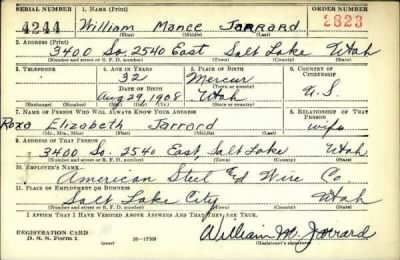 SERIAL NUMBER 1. NAME (Print) ORDER NUMBER
4244 William Mance Jarrard 2823
(First) (Middle) (Last)
2. ADDRESS (Print)
3400 So. 2540 East, Salt Lake Utah
(Number and street or R. F. D. number) (Town) (County) (State)
3. TELEPHONE 4. AGE IN YEARS 5. PLACE OF BIRTH 6. COUNTRY OF CITIZENSHIP
32 Mercur
DATE OF BIRTH (Town or county)
Aug 29 1908 Utah U.S.
(Exchange) (Number) (Mo.) (Day) (Yr.) (State or country)
7. NAME OF PERSON WHO WILL ALWAYS KNOW YOUR ADDRESS 8. RELATIONSHIP OF THAT PERSON
Roxa Elizabeth Jarrard wife
(Mr., Mrs., Miss) (First) (Middle) (Last)
9. ADDRESS OF THAT PERSON
3400 So. 2540 East, Salt Lake Utah
(Number and street or R. F. D. number) (Town) (County) (State)
10. EMPLOYER'S NAME
American Steel & Wire Co
11. PLACE OF EMPLOYMENT OR BUSINESS
Salt Lake City Utah
(Number and street or R. F. D. number) (Town) (County) (State)
I AFFIRM THAT I HAVE VERIFIED ABOVE ANSWERS AND THAT THEY ARE TRUE.
REGISTRATION CARD
D. S. S. Form 1 16—17105 William M. Jarrard
(Registrant's signature)